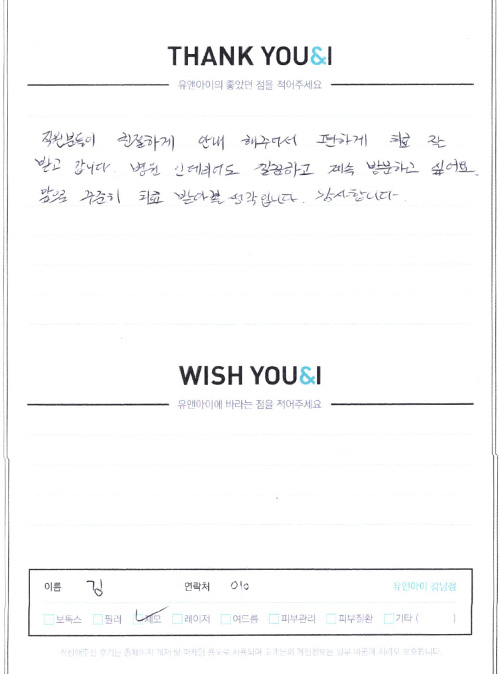 THANK YOU&I
유앤아이의 좋았던 점을 적어주세요
직원분들이 친절하게 안내 해주셔서 편하게 치료 잘
받고 갑니다. 병원 인테리어도 깔끔하고 계속 방문하고 싶어요.
앞으로 꾸준히 치료 받아볼 생각입니다. 감사합니다.
WISH YOU&I
유앤아이에 바라는 점을 적어주세요
이름 김 연락처 010 유앤아이 강남점
보톡스 필러 제모 레이저 여드름 피부관리 피부질환 기타 ( )
작성해주신 후기는 홈페이지 게재 및 마케팅 용도로 사용되며